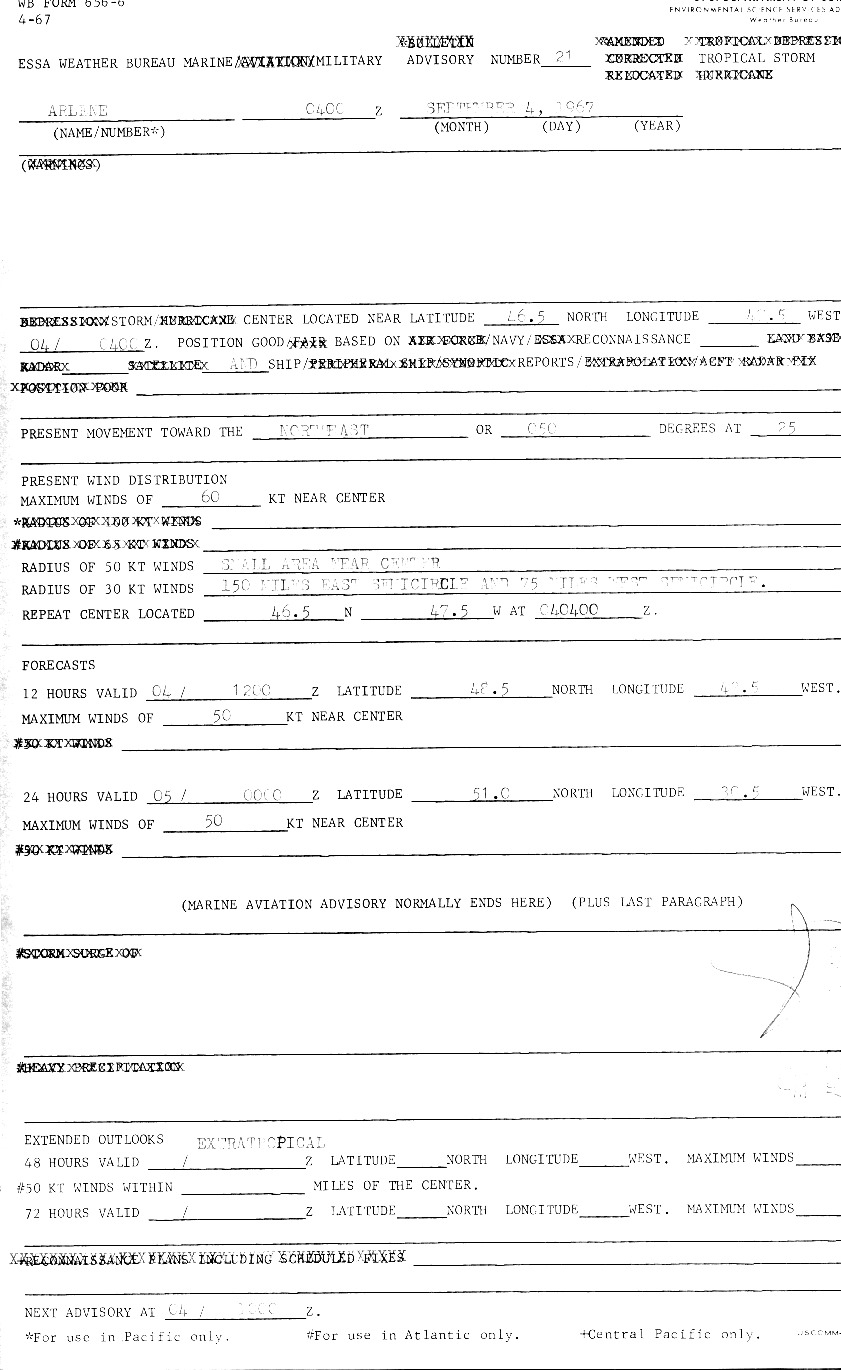 WB FORM 656-6
4-67
ENVIRONMENTAL SCIENCE SERVICES AD
Weather Bureau
BULLETIN AMENDED TROPICAL DEPRESSI
ESSA WEATHER BUREAU MARINE/AVIATION/MILITARY ADVISORY NUMBER 21 CORRECTED TROPICAL STORM
RELOCATED HURRICANE
ARLENE 0400 Z SEPTEMBER 4, 1967
(NAME/NUMBER*) (MONTH) (DAY) (YEAR)
(WARNINGS)
DEPRESSION/STORM/HURRICANE CENTER LOCATED NEAR LATITUDE 46.5 NORTH LONGITUDE 47.5 WEST
04/ 0400 Z. POSITION GOOD/FAIR BASED ON AIR FORCE/NAVY/ESSA RECONNAISSANCE LAND BASE
RADAR SATELLITE AND SHIP/PERIPHERAL SHIP/SYNOPTIC REPORTS/EXTRAPOLATION/ACFT RADAR FIX
POSITION POOR
PRESENT MOVEMENT TOWARD THE NORTHEAST OR 050 DEGREES AT 25
PRESENT WIND DISTRIBUTION
MAXIMUM WINDS OF 60 KT NEAR CENTER
*RADIUS OF 100 KT WINDS
#RADIUS OF 65 KT WINDS
RADIUS OF 50 KT WINDS SMALL AREA NEAR CENTER
RADIUS OF 30 KT WINDS 150 MILES EAST SEMICIRCLE AND 75 MILES WEST SEMICIRCLE.
REPEAT CENTER LOCATED 46.5 N 47.5 W AT 040400 Z.
FORECASTS
12 HOURS VALID 04 / 1200 Z LATITUDE 48.5 NORTH LONGITUDE WEST.
MAXIMUM WINDS OF 50 KT NEAR CENTER
#50 KT WINDS
24 HOURS VALID 05 / 0000 Z LATITUDE 51.0 NORTH LONGITUDE WEST.
MAXIMUM WINDS OF 50 KT NEAR CENTER
#50 KT WINDS
(MARINE AVIATION ADVISORY NORMALLY ENDS HERE) (PLUS LAST PARAGRAPH)
#STORM SURGE OF
#HEAVY PRECIPITATION
EXTENDED OUTLOOKS EXTRATROPICAL
48 HOURS VALID / Z LATITUDE NORTH LONGITUDE WEST. MAXIMUM WINDS
#50 KT WINDS WITHIN MILES OF THE CENTER.
72 HOURS VALID / Z LATITUDE NORTH LONGITUDE WEST. MAXIMUM WINDS
+RECONNAISSANCE PLANS INCLUDING SCHEDULED FIXES
NEXT ADVISORY AT 04 / 1000 Z.
*For use in Pacific only. #For use in Atlantic only. +Central Pacific only. USCOMM-